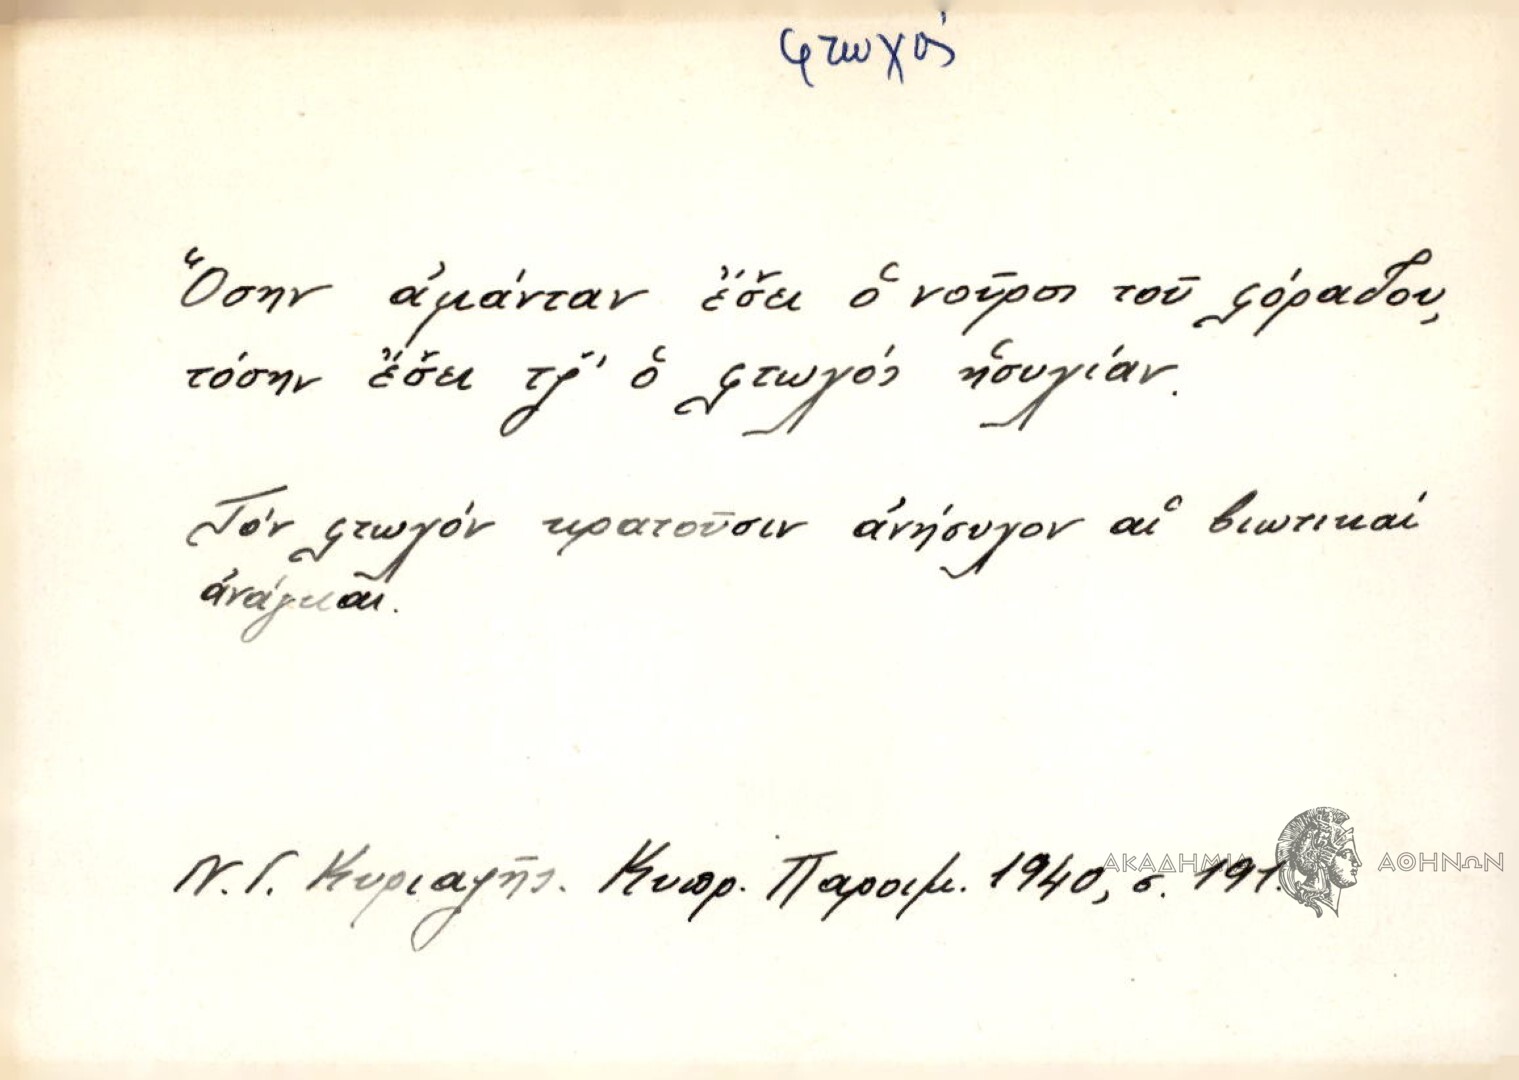 φτωχός
Ὅσην ἀμάνταν ἔσ̌ει ὁ νοῦρος τοῦ φόραδου,
τόσην ἔσ̌ει τζ̌' ὁ φτωχός ἡσυχίαν.
Τόν φτωχόν κρατοῦσιν ἀνήσυχον αἱ βιωτικαί
ἀνάγκαι.
Ν. Γ. Κυριαζῆς. Κυπρ. Παροιμ. 1940, σ. 191.
ΑΚΑΔΗΜΙΑ ΑΘΗΝΩΝ